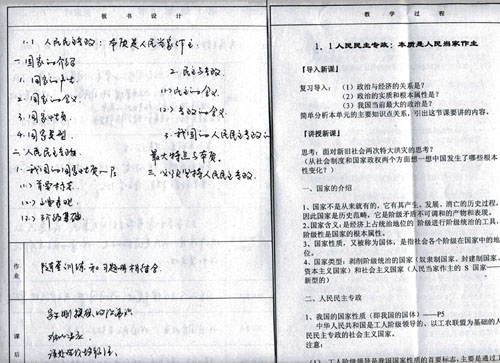 板书设计
1.1 人民民主专政：本质是人民当家作主
一.国家的介绍
1.国家的产生
2.国家的含义
3.国家性质
4.国家类型
二.人民民主专政
1.我国的国家性质
2.民主与专政
(1)民主的含义
(2)专政的含义
3.我国的人民民主专政的
最大特点与本质
三.必须坚持人民民主专政
作业
随堂训练和习题册相结合
课后
教学过程
1．1人民民主专政：本质是人民当家作主
『导入新课』
复习导入：（1）政治与经济的关系是？
（2）政治的实质和根本属性是？
（3）我国当前最大的政治是？
简单分析本单元的主要知识点关系，引出这节课要讲的内容。
『讲授新课』
思考：面对新旧社会两次特大洪灾的思考？
（从社会制度和国家政权两个方面想一想中国发生了哪些根本
性变化？）
一、国家的介绍
1、国家不是从来就有的，它有其产生、发展、消亡的历史过程，
因此国家是历史范畴，它是阶级矛盾不可调和的产物和表现。
2、国家含义：是经济上占统治地位的阶级进行阶级统治的工具，
阶级性是国家的根本属性。
3、国家性质，又被称为国体，是指社会各个阶级在国家中的地
位。
4、国家类型：剥削阶级统治的国家（奴隶制国家、封建制国家、
资本主义国家）和社会主义国家（人民当家作主的 S 国家——
新型的）
二、人民民主专政
1、我国的国家性质（即我国的国体）——P5
中华人民共和国是工人阶级领导的、以工农联盟为基础的人
民民主专政的社会主义国家。
注意：
（1）工人阶级领导是我国国家性质的首要标志，主要是通过